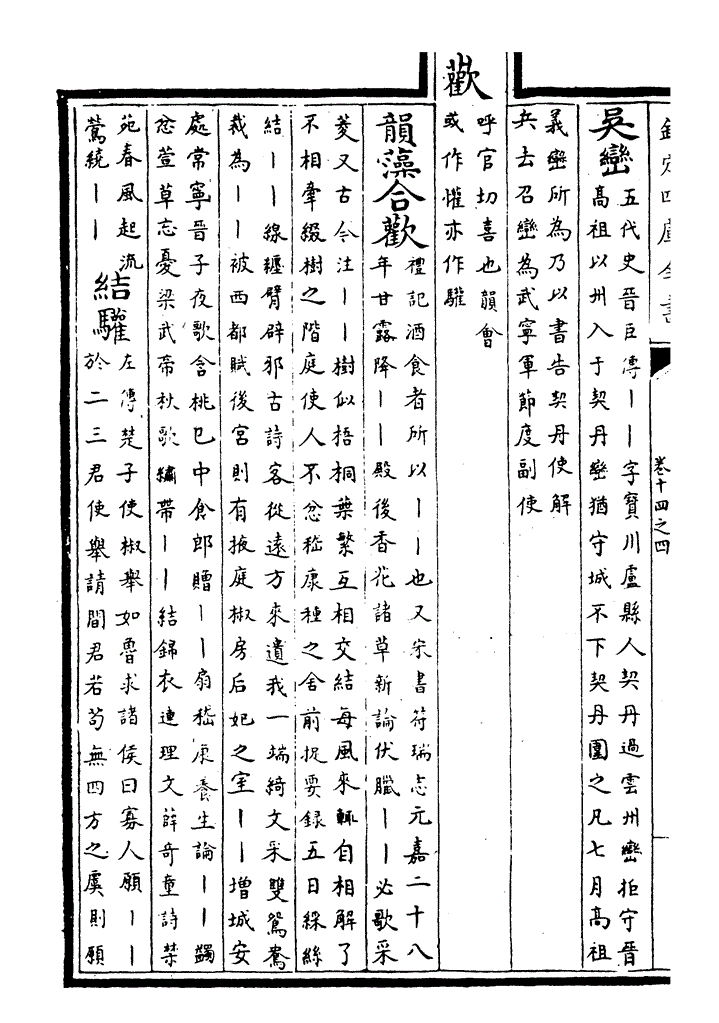 欽定四庫全書
卷十四之四
吳巒
五代史晉臣傳丨丨字寶川盧縣人契丹過雲州巒拒守晉
高祖以州入于契丹巒猶守城不下契丹圍之凡七月高祖
義巒所為乃以書告契丹使解
兵去召巒為武寧軍節度副使
歡
呼官切喜也韻會
或作懽亦作驩
韻藻合歡
禮記酒食者所以丨丨也又宋書符瑞志元嘉二十八
年甘露降丨丨殿後香花諸草新論伏臘丨丨必歌采
菱又古今注丨丨樹似梧桐葉繁互相交結每風來輒自相解了
不相牽綴樹之階庭使人不忿嵇康種之舍前捉要錄五日綵絲
結丨丨線纏臂辟邪古詩客從遠方來遺我一端綺文采雙鴛鴦
裁為丨丨被西都賦後宮則有掖庭椒房后妃之室丨丨增城安
處常寧晉子夜歌含桃巳中食郎贈丨丨扇嵇康養生論丨丨蠲
忿萱草忘憂梁武帝秋歌繡帶丨丨結錦衣連理文薛奇童詩禁
苑春風起流
鶯統丨丨
結驩
左傳楚子使椒舉如魯求諸侯曰寡人願丨丨
於二三君使舉請間君若苟無四方之虞則願